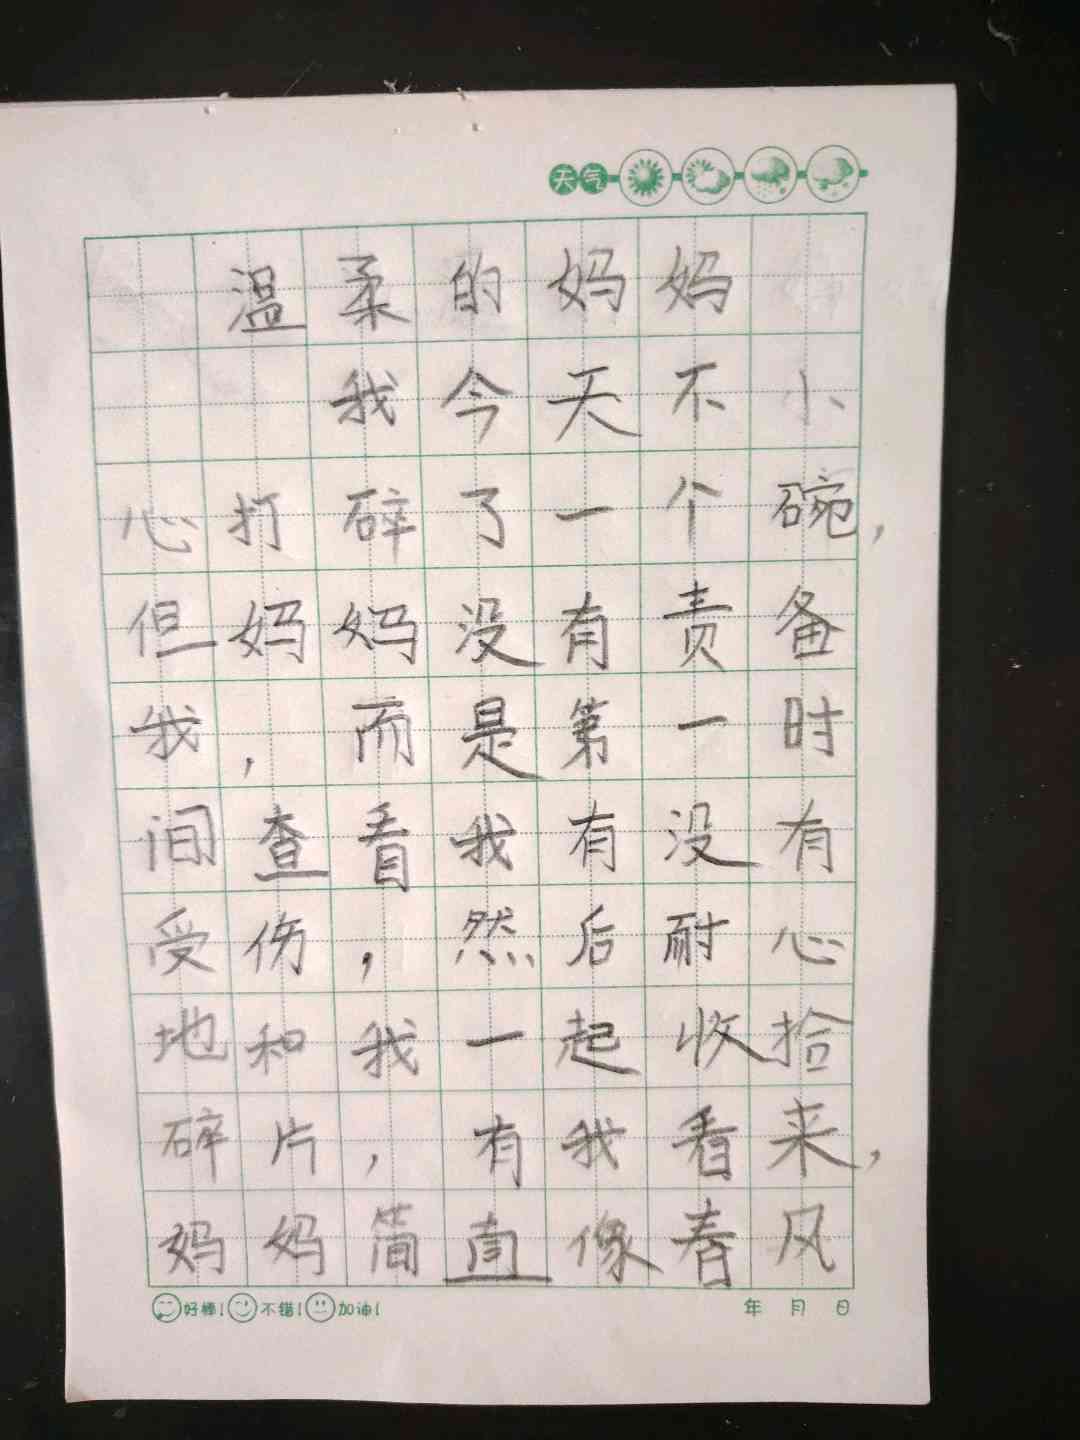 天气
温柔的妈妈
我今天不小
心打碎了一个碗，
但妈妈没有责备
我，而是第一时
间查看我有没有
受伤，然后耐心
地和我一起收拾
碎片，有我看来，
妈妈简直像春风
好棒！不错！加油！
年 月 日